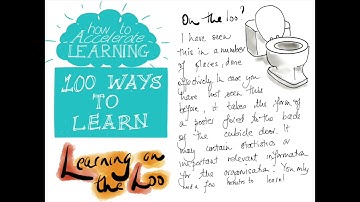 how to
Accelerate
LEARNING
100 WAYS
TO
LEARN
Learning on
the Loo
On the Loo?
I have seen
this in a number
of places, done
effectively. In case you
have not seen this
before, it takes the form of
a poster fixed to the back
of the cubicle door. It
may contain statistics or
important relevant information
for the organisation. You only
have a few minutes to learn!